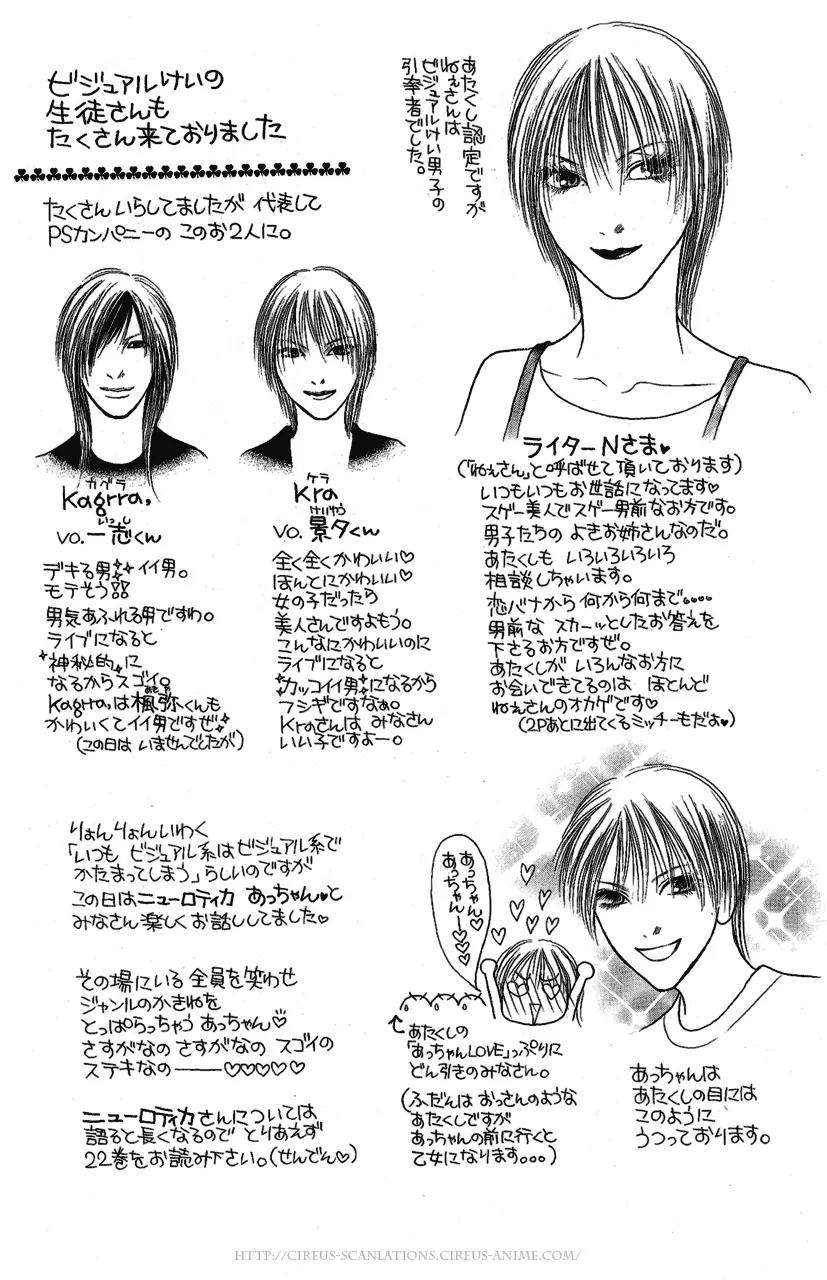 ビジュアルけいの
生徒さんも
たくさん来ておりました
たくさんいらしてましたが 代表して
PSカンパニーの このお2人に。
あたくし認定ですが
ねぇさんは
ビジュアルけい男子の
引率者でした。
カグラ
Kagrra,
いっし
vo.一志くん
デキる男 イイ男。
モテそう
男気あふれる男ですわ。
ライブになると
"神秘的"に
なるからスゴイ。
Kagrra,は楓弥くんも
かわいくてイイ男ですぜ
(この日は いませんでしたが)
ケラ
Kra
けいゆう
vo.景夕くん
全く全くかわいい♡
ほんとにかわいい♡
女の子だったら
美人さんですよもう。
こんなにかわいいのに
ライブになると
"カッコイイ男"になるから
フシギですなぁ。
Kraさんは みなさん
いい子ですよー。
ライターNさま♥
(「ねぇさん」と呼ばせて頂いております)
いつもいつもお世話になってます♡
スゲー美人でスゲー男前なお方です。
男子たちの よきお姉さんなのだ。
あたくしも いろいろいろいろ
相談しちゃいます。
恋バナから 何から何まで。。。。
男前な スカーッとしたお答えを
下さるお方ですぜ。
あたくしが いろんなお方に
お会いできてるのは ほとんど
ねぇさんのオカゲです♡
(2Pあとに出てくるミッチーもだよ♥)
りょんりょんいわく
「いつも ビジュアル系はビジュアル系で
かたまってしまう」らしいのですが
この日はニューロティカ あっちゃん♥と
みなさん楽しくお話ししてました♡
その場にいる 全員を笑わせ
ジャンルのかきねを
とっぱらっちゃう あっちゃん♡
さすがなの さすがなの スゴイの
ステキなの───♡♡♡♡♡
ニューロティカさんについては
語ると長くなるので とりあえず
22巻をお読み下さい。(せんでん♡)
あっちゃん♡
あっちゃんー♡♡♡
あたくしの
「あっちゃんLOVE」っぷりに
どん引きのみなさん。
(ふだんは おっさんのような
あたくしですが
あっちゃんの前に行くと
乙女になります。。。)
あっちゃんは
あたくしの目には
このように
うつっております。
HTTP://CIREUS-SCANLATIONS.CIREUS-ANIME.COM/